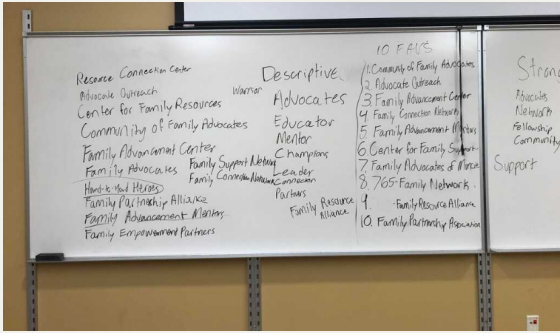 Resource Connection Center
Advocate Outreach
Center for Family Resources
Community of Family Advocates
Family Advancement Center
Family Advocates
Hand-to-Hand Heroes
Family Partnership Alliance
Family Advancement Mentors
Family Empowerment Partners
Family Support Network
Family Connection Network
Warrior
Descriptive
Advocates
Educator
Mentor
Champions
Leader
Connection
Partners
Family Resource
Alliance
10 FAVS
1. Community of Family Advocates
2. Advocate Outreach
3. Family Advancement Center
4. Family Connection Network
5. Family Advancement Mentors
6. Center for Family Support
7. Family Advocates of
8. 765-Family Network
9. Family Resource Alliance
10. Family Partnership Association
Strong
Advocates
Network
Fellowship
Community
Support